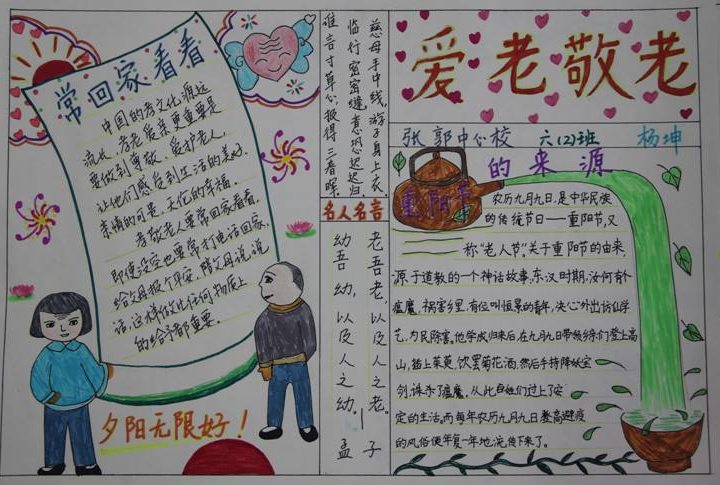 常回家看看
中国的孝文化源远
流长，孝老爱亲更重要是
要做到尊敬、爱护老人，
让他们感受到生活的美好、
亲情的可贵、天伦的幸福。
孝敬老人要常回家看看，
即使没空也要常打电话回家，
给父母报个平安，陪父母说说
话，这样做比任何物质上
的给予都重要。
夕阳无限好！
慈母手中线，游子身上衣。
临行密密缝，意恐迟迟归。
谁言寸草心，报得三春晖。
名人名言
老吾老，以及人之老。
幼吾幼，以及人之幼。
——孟子
爱老敬老
张郭中心校 六(2)班 杨坤
重阳节的来源
农历九月九日，是中华民族
的传统节日——重阳节，又
称“老人节”。关于重阳节的由来，
源于道教的一个神话故事：东汉时期，汝河有个
瘟魔，祸害乡里，有位叫恒景的青年，决心外出访仙学
艺，为民除害。他学成归来后，在九月九日带领乡亲们登上高
山，插上茱萸，饮罢菊花酒，然后手持降妖宝
剑，诛杀了瘟魔，从此百姓们过上了安
定的生活，而每年农历九月九日登高避疫
的风俗便年复一年地流传下来了。